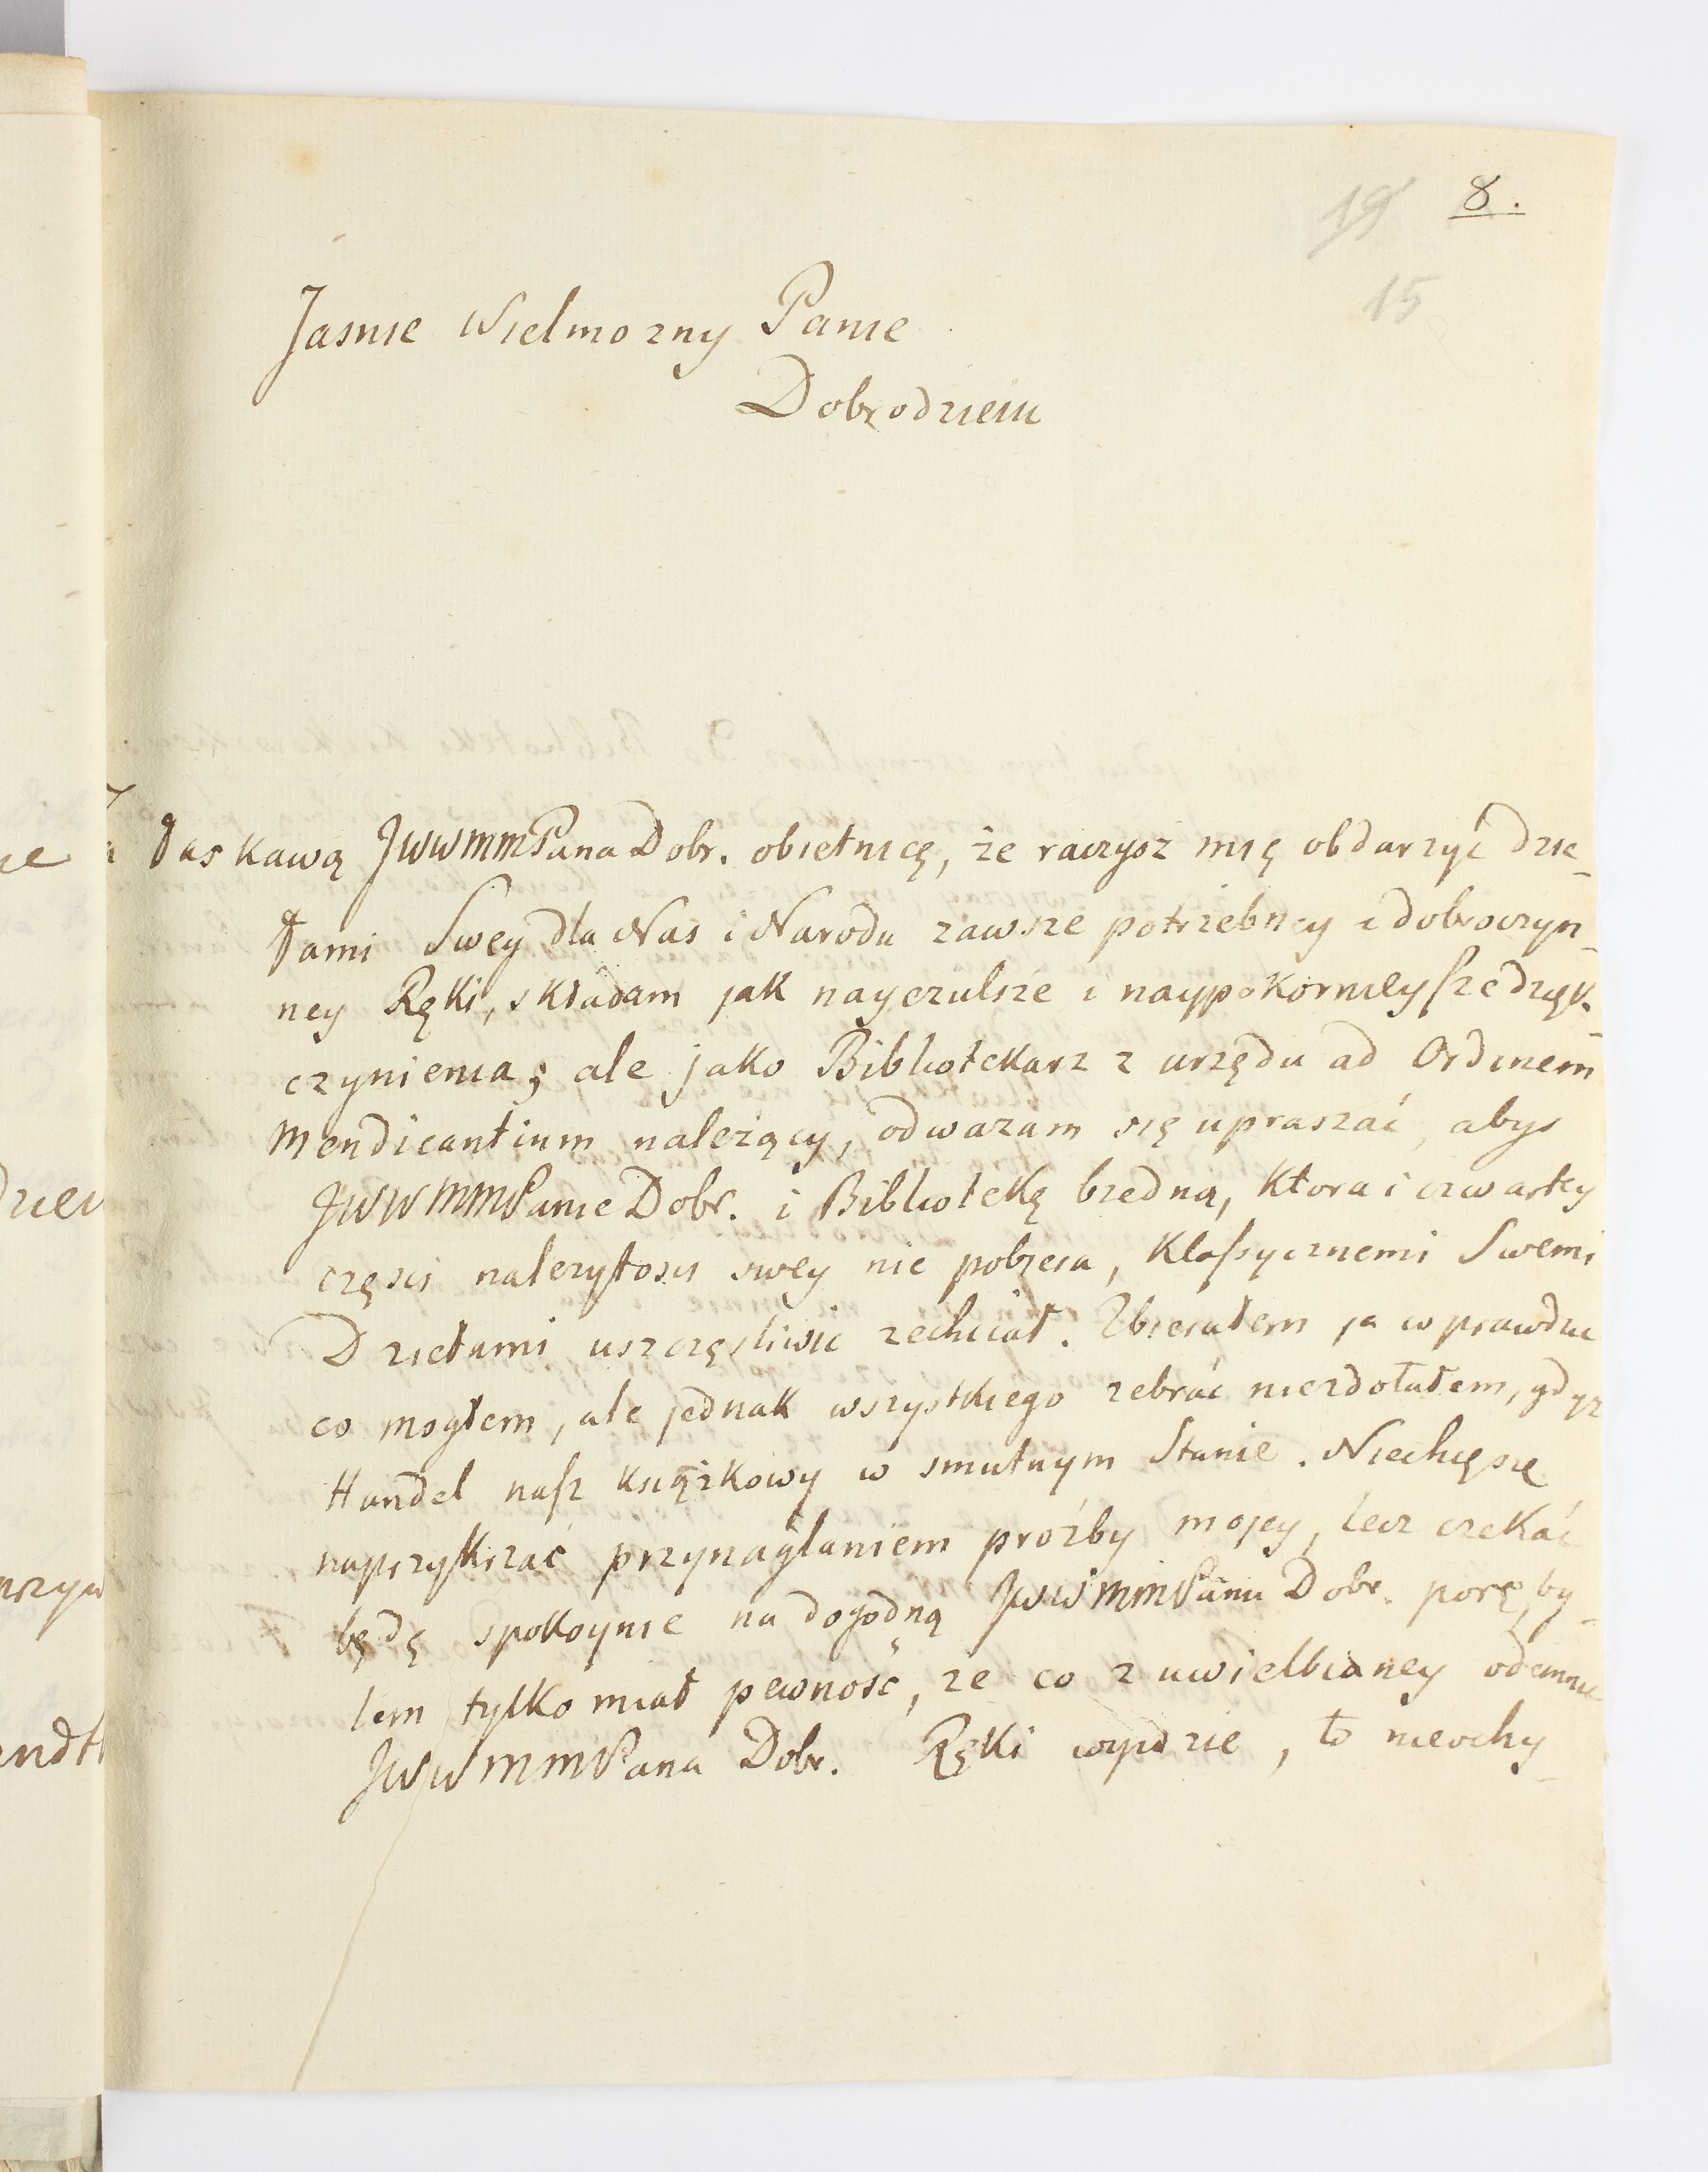 8.
19
15
Jasnie Wielmozny Panie
Dobrodzieiu
Łaskawą JWWMMPana Dobr. obietnicę, że raczysz mię obdarzyć dzie-
łami Swey dla Nas i Narodu zawsze potrzebney i dobroczyn-
ney Ręki, składam jak nayczulsze i naypokornieysze dzięk-
czynienia; ale jako Bibliotekarz z urzędu ad Ordinem
Mendicantium należący, odwazam się upraszać, abys
JWWMMPanie Dobr. i Bibliotekę biedną, ktora i czwartey
części nalezytości swey nie pobiera, Klassycznemi Swemi
Dziełami uszczęsliwić zechciał. Zbierałem ja wprawdzie
co mogłem, ale jednak wszystkiego zebrać niezdołałem, gdyz
Handel nasz książkowy w smutnym Stanie. Niechcę się
naprzykrzać przynaglaniem prożby mojey, lecz czekać
będę spokoynie na dogodną JWWMMPanu Dobr. porę, by-
lem tylko miał pewność, ze co z uwielbianey odemnie
JWWMMPana Dobr. Ręki wyidzie, to nieochy-